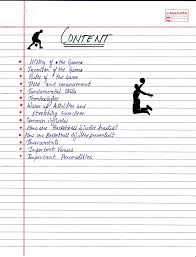 CONTENT
History of the Games
Invention of the Games
Rules of the Game
Field and measurement
Fundamental skills
Terminologies
Warm up Activities and
stretching Exercises
Common injuries
How are Basketball injuries treated?
How can Basketball injuries prevented?
Tournaments
Important Venues
Important Personalities